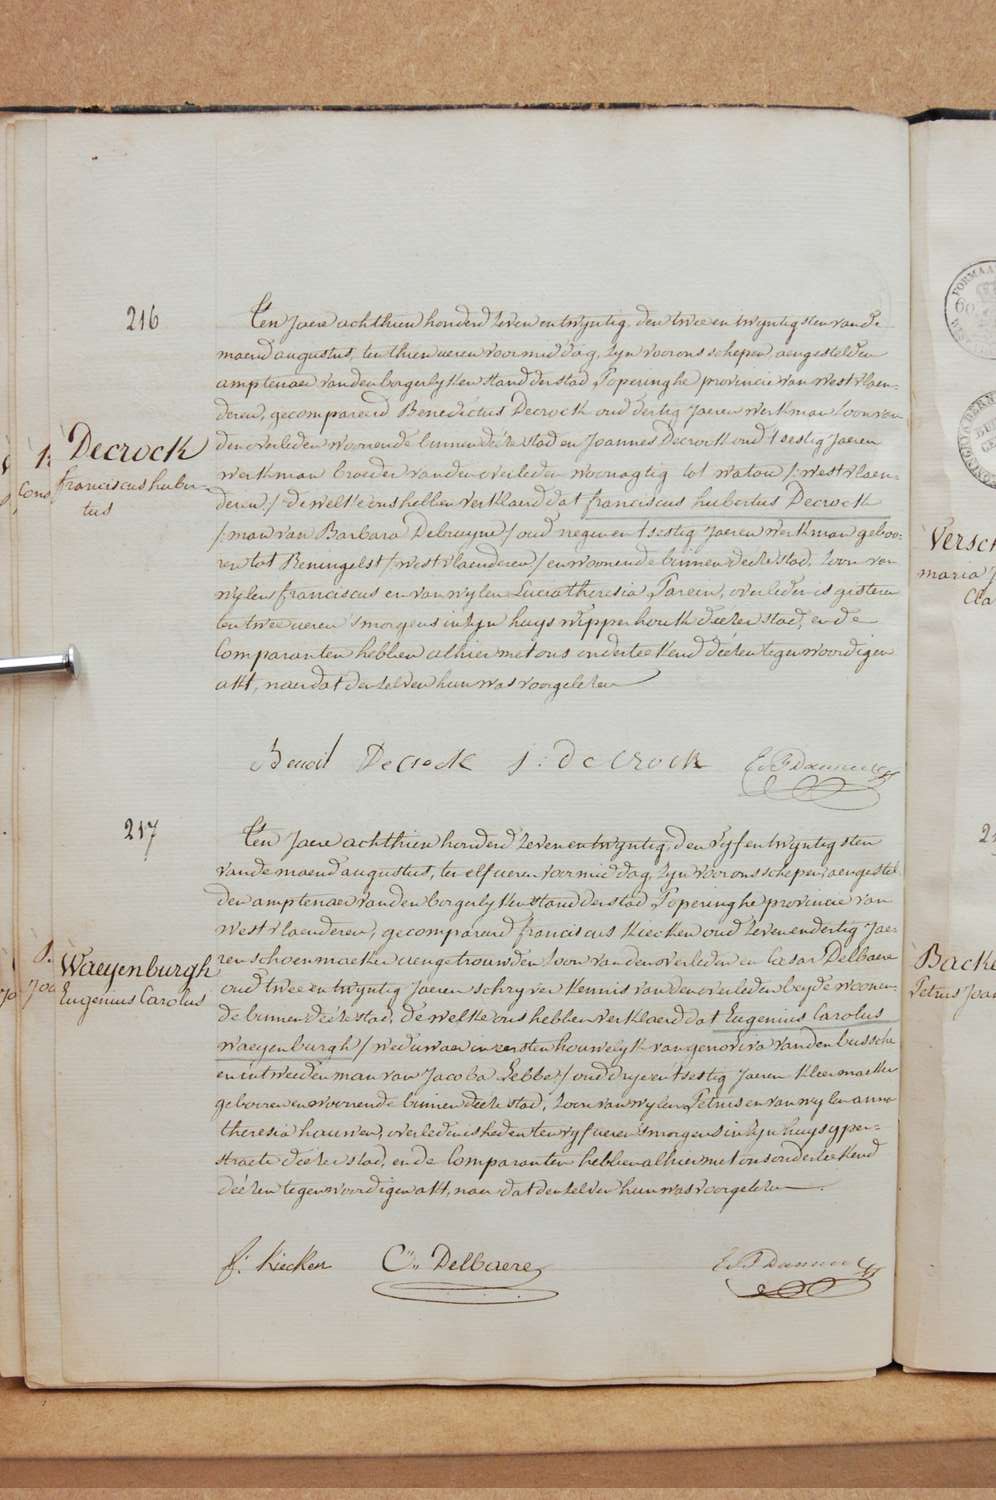 216
Ten jaere achthien honderd zeven en twyntig, den twee en twyntigsten van de
maend augustus, ten thien ueren voormiddag, zyn voor ons schepen, aengestelden
amptenaer van den borgerlyken stand der stad Poperinghe provincie van westvlaen-
deren, gecompareerd Benedictus Decrock oud dertig jaeren werkman zoon van
den overleden woonende binnen deéze stad en Joannes Decrock oud t'sestig jaeren
werkman broeder van den overleden woonagtig tot watou /:westvlaen-
deren/ de welke ons hebben verklaerd dat franciscus hubertus Decrock
/:man van Barbara Debruyne/ oud negen en t sestig jaeren werkman geboo-
ren tot Reningelst /westvlaenderen/ en woonende binnen deeze stad, zoon van
wylen franciscus en van wylen Lucia theresia Pareen, overleden is gisteren
ten twee ueren smorgens in zyn huys wipperhoutk deezer stad, en de
Comparanten hebben alhier met ons onderteekend déézen tegenwoordigen
akt, naer dat den zelven hun was voorgelezen
Decrock
franciscus huber-
tus
Benoit Decrock j: decrock
217
Ten jaere achthien honderd zeven en twyntig, den vyf en twyntigsten
van de maend augustus, ten elf ueren voormiddag, zyn voor ons schepen, aengestel-
den amptenaer van den borgerlyken stand der stad Poperinghe provincie van
westvlaenderen, gecompareerd franciscus Kiecken oud zeven en dertig jaer-
ren schoenmaeker aengetrouwden zoon van den overleden en Cesar Delbaere
oud twee en twyntig jaeren schryver kennis van den overleden beyde woonen-
de binnen dééze stad, de welke ons hebben verklaerd dat Eugenius Carolus
waeyenburgh /weduwaer in eersten houwelyk van genoviva vandenbussche
en in tweeden man van Jacoba Lebbe/ oud drye en t sestig jaeren kleermaeker
geboren en woonende binnen deéze stad, zoon van wylen Petrus en van wylen anna
theresia hauwen, overleden is heden ten vyf ueren smorgens in zyn huys yper-
straete déézer stad, en de Comparanten hebben alhier met ons onderteekend
déézen tegenwoordigen akt, naer dat den zelven hun was voorgelezen
Waeyenburgh
Eugenius Carolus
f: Kiecken C:. Delbaere
Versch
maria J
Cla
Backe
Petrus Joan